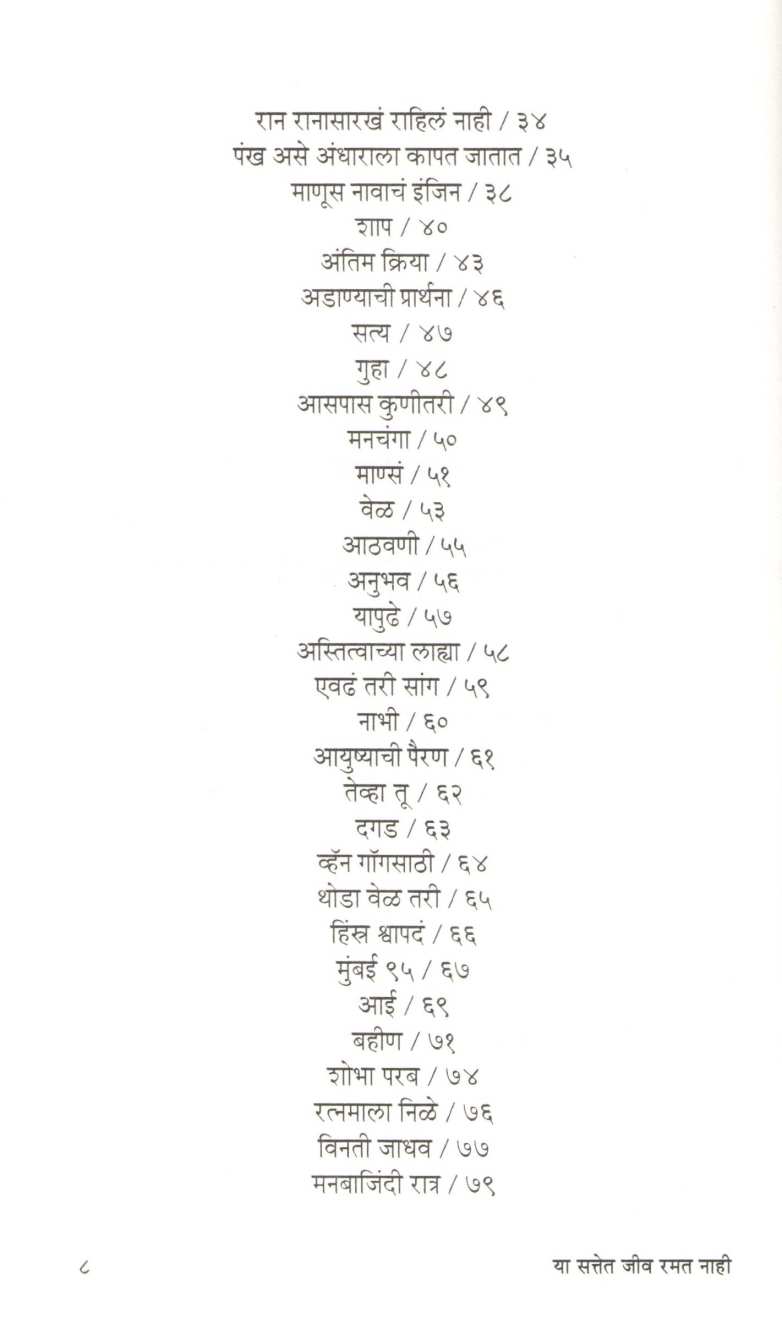 रान रानासारखं राहिलं नाही / ३४
पंख असे अंधाराला कापत जातात / ३५
माणूस नावाचं इंजिन / ३८
शाप / ४०
अंतिम क्रिया / ४३
अडाण्याची प्रार्थना / ४६
सत्य / ४७
गुहा / ४८
आसपास कुणीतरी / ४९
मनचंगा / ५०
माण्सं / ५१
वेळ / ५३
आठवणी / ५५
अनुभव / ५६
यापुढे / ५७
अस्तित्वाच्या लाह्या / ५८
एवढं तरी सांग / ५९
नाभी / ६०
आयुष्याची पैरण / ६१
तेव्हा तू / ६२
दगड / ६३
व्हॅन गॉगसाठी / ६४
थोडा वेळ तरी / ६५
हिंस्र श्वापदं / ६६
मुंबई ९५ / ६७
आई / ६९
बहीण / ७१
शोभा परब / ७४
रत्नमाला निळे / ७६
विनती जाधव / ७७
मनबाजिंदी रात्र / ७९
८ या सत्तेत जीव रमत नाही